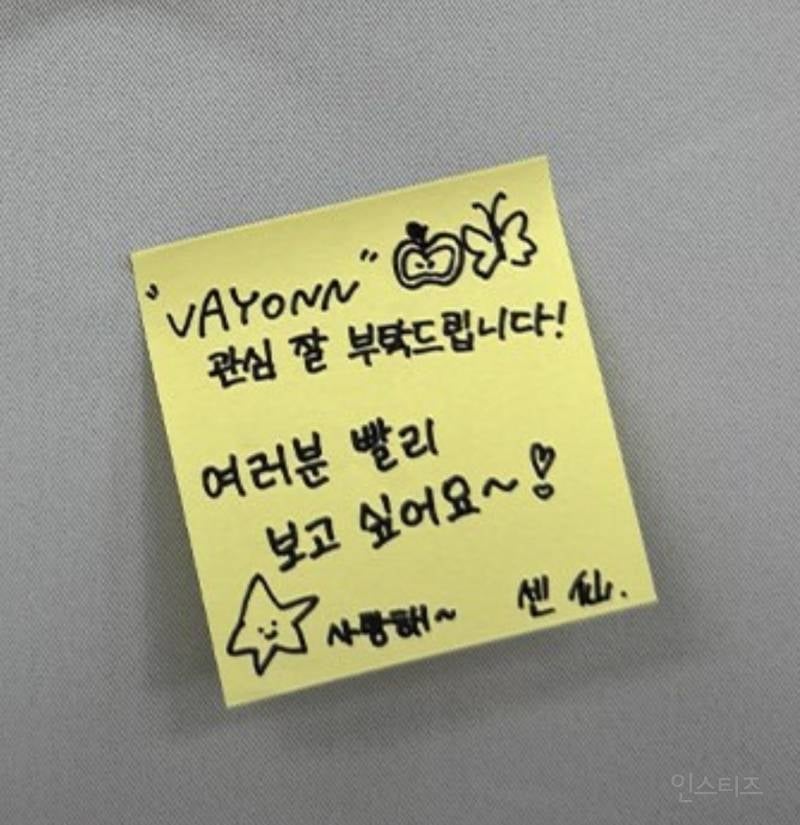 "VAYONN"
관심 잘 부탁드립니다!
여러분 빨리
보고 싶어요~!
사랑해~ 센 仙.
인스티즈